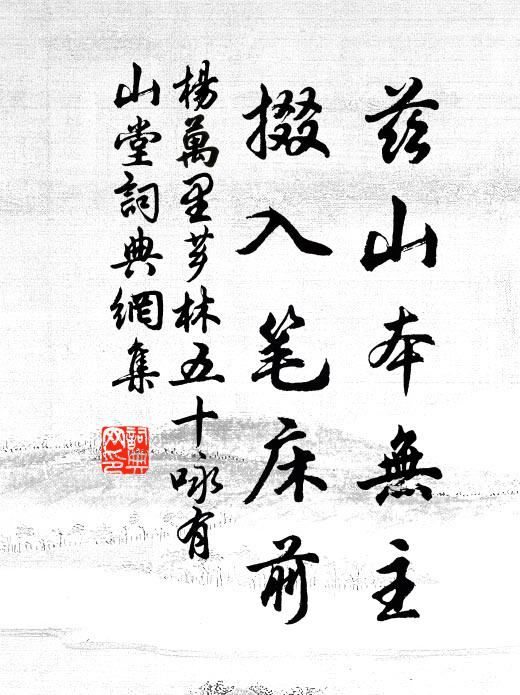 茲山本無主
掇入笔床前
楊萬里芗林五十咏有
山堂詞典網集
詞典網印